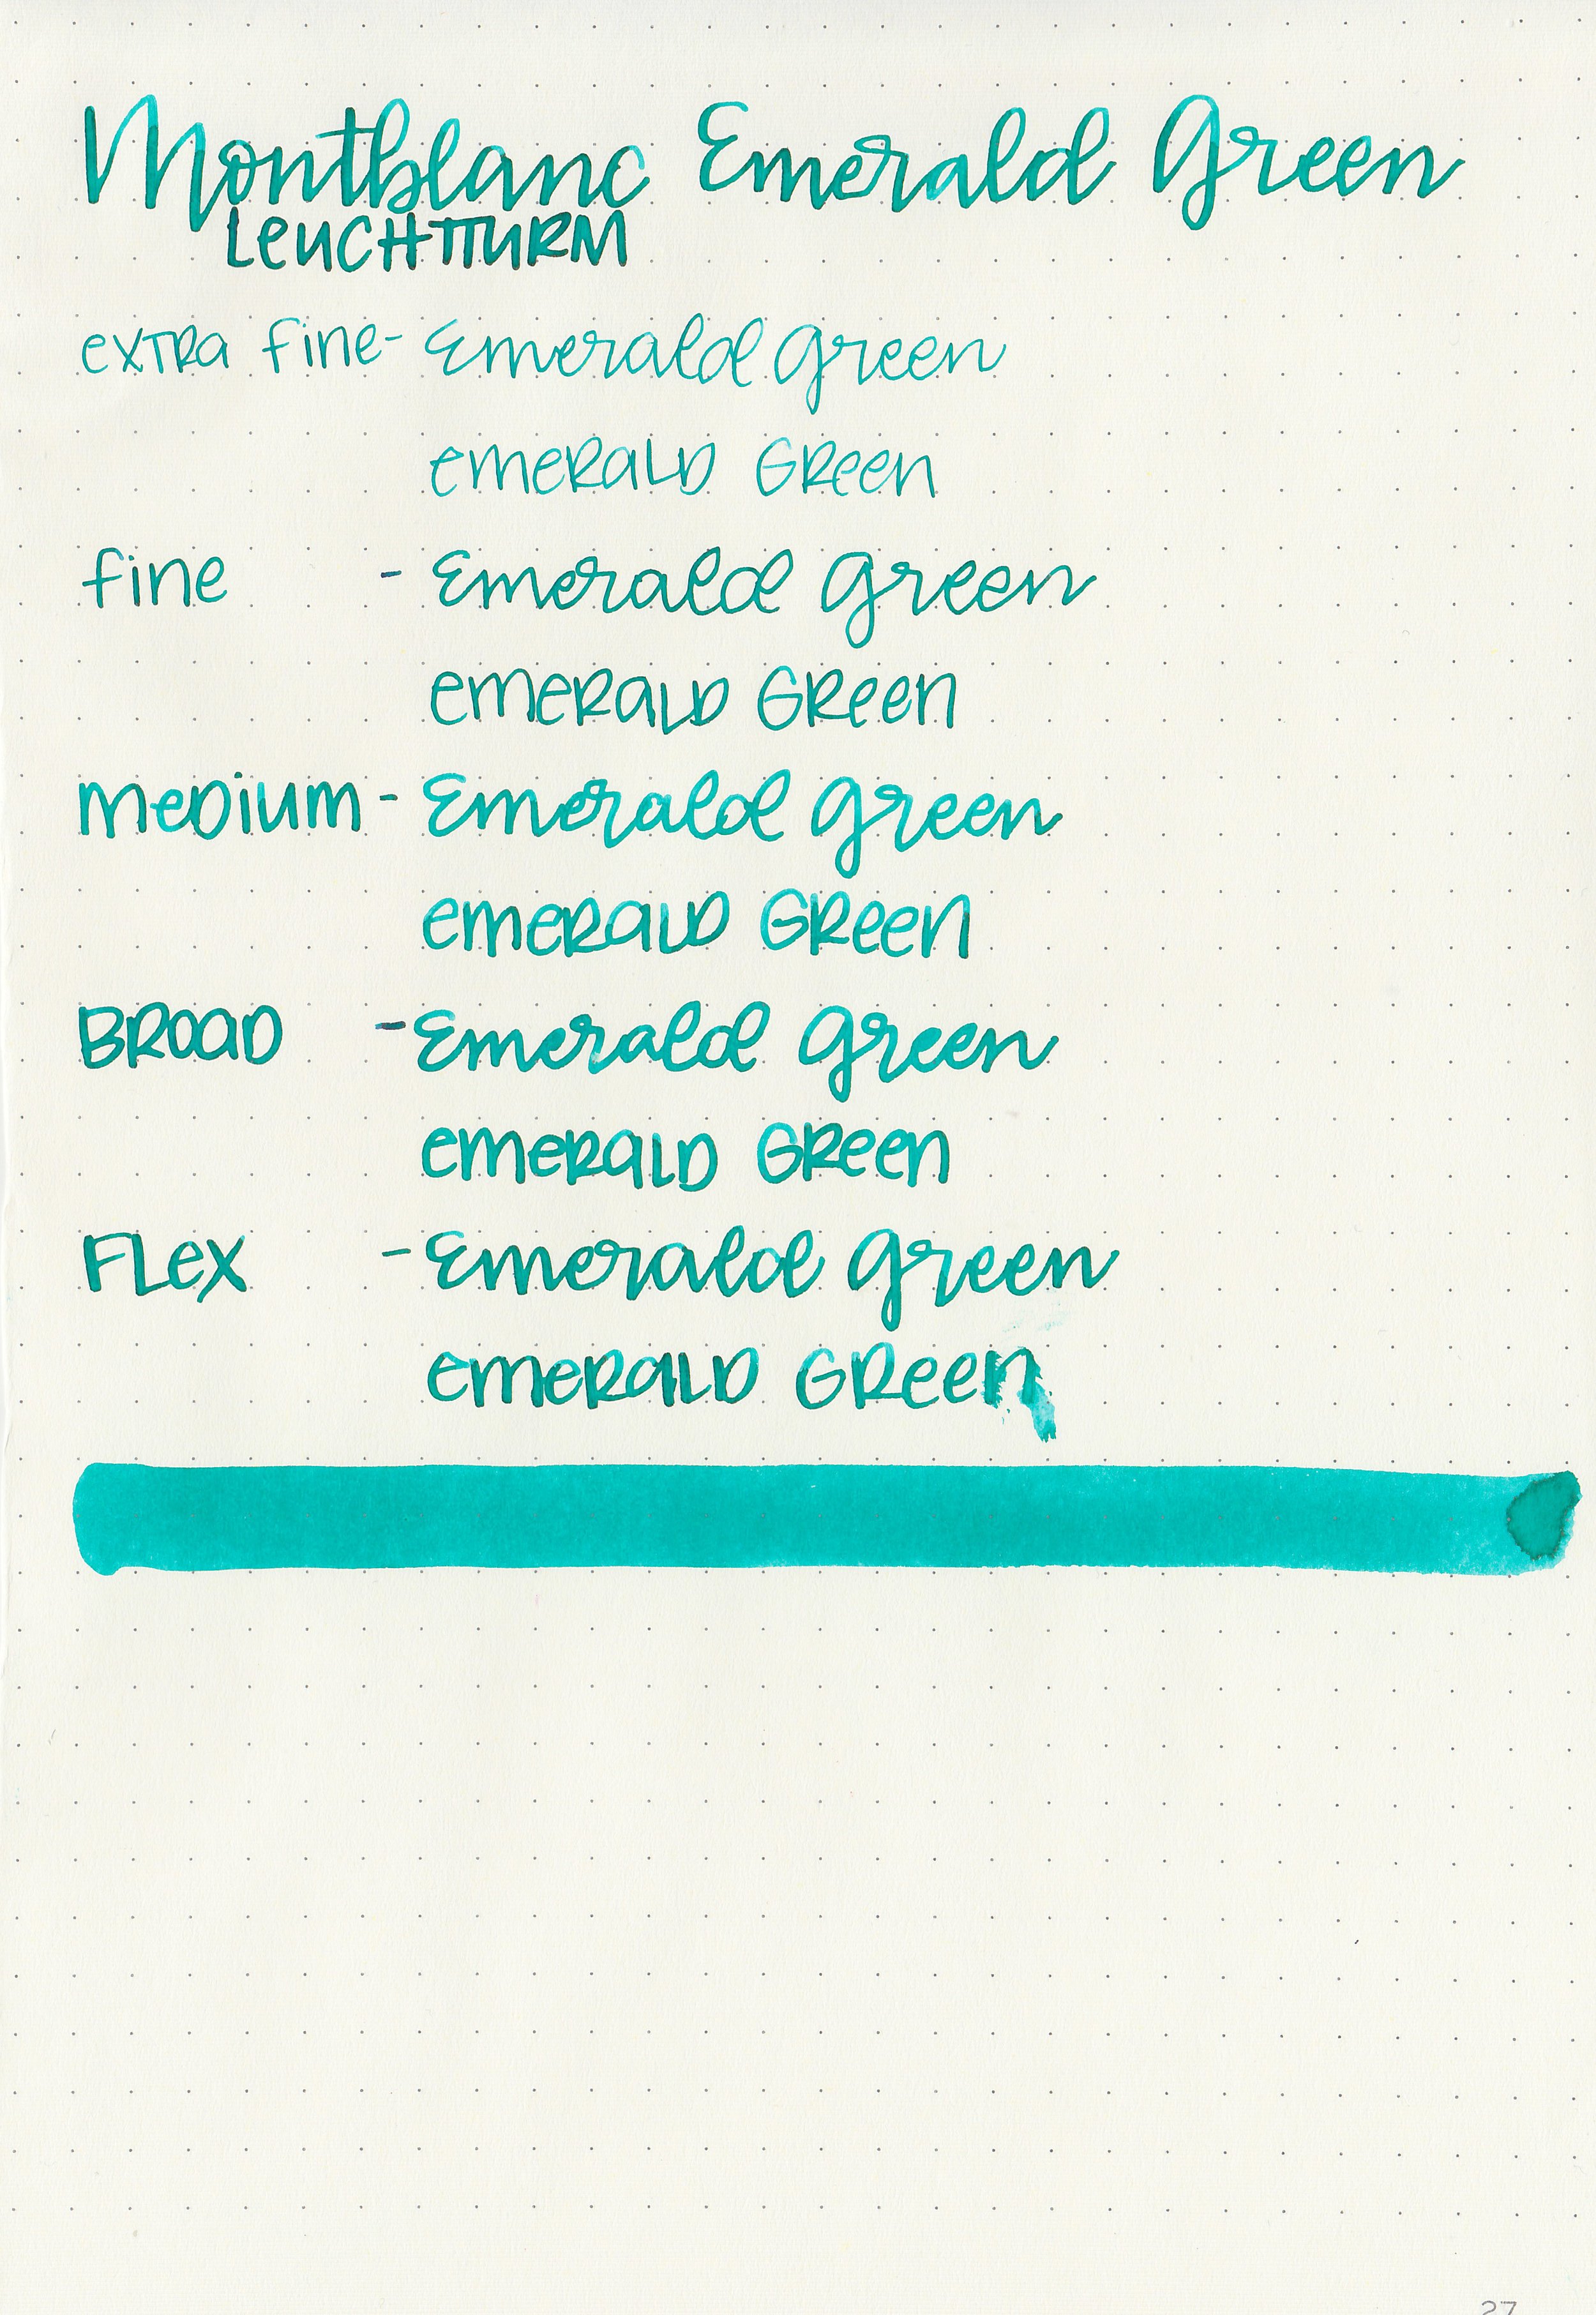 Montblanc Emerald Green
LEUCHTTURM
extra fine- Emerald Green
emerald Green
fine - Emerald Green
emerald Green
medium - Emerald Green
emerald Green
Broad - Emerald Green
emerald Green
Flex - Emerald Green
emerald Green
27